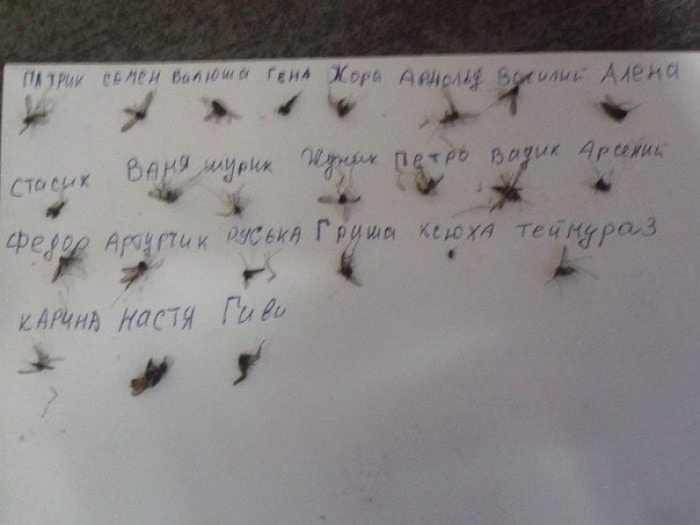 ПАТРИК СЕМЕН Валюша ГЕНА Жора Арнольд Василий АЛЕНА
Стасик ВАНЯ шурик Петро Вадик Арсений
Федор Артурчик РУСЬКА Груша КСЮХА Теймураз
КАРИНА НАСТЯ Гиви